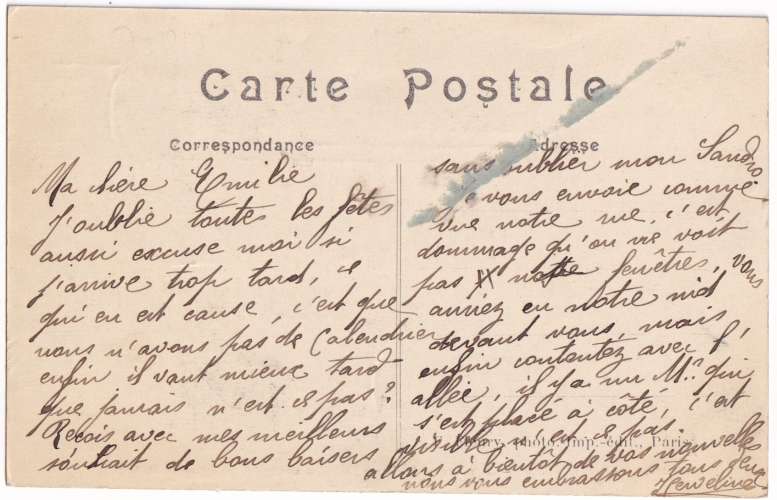 Carte Postale
Correspondance
Adresse
Ma chère Emilie
J'oublie toutes les fêtes
aussi excuse moi si
j'arrive trop tard, ce
qui en est cause, c'est que
nous n'avons pas de Calendrier
enfin il vaut mieux tard
que jamais n'est-ce pas?
Reçois avec mes meilleurs
souhait de bons baisers
sans oublier mon Sandro
Je vous envoie comme
vue notre rue, c'est
dommage qu'on ne voit
pas notre fenêtres, vous
auriez eu notre nid
devant vous, mais
enfin contentez avec l'
allée, il y a un Mr. qui
s'est placé à côté, c'est
n'est ce pas.
Fleury, phot. imp.-édit., Paris
allons à bientôt de vos nouvelles
nous vous embrassons tous deux